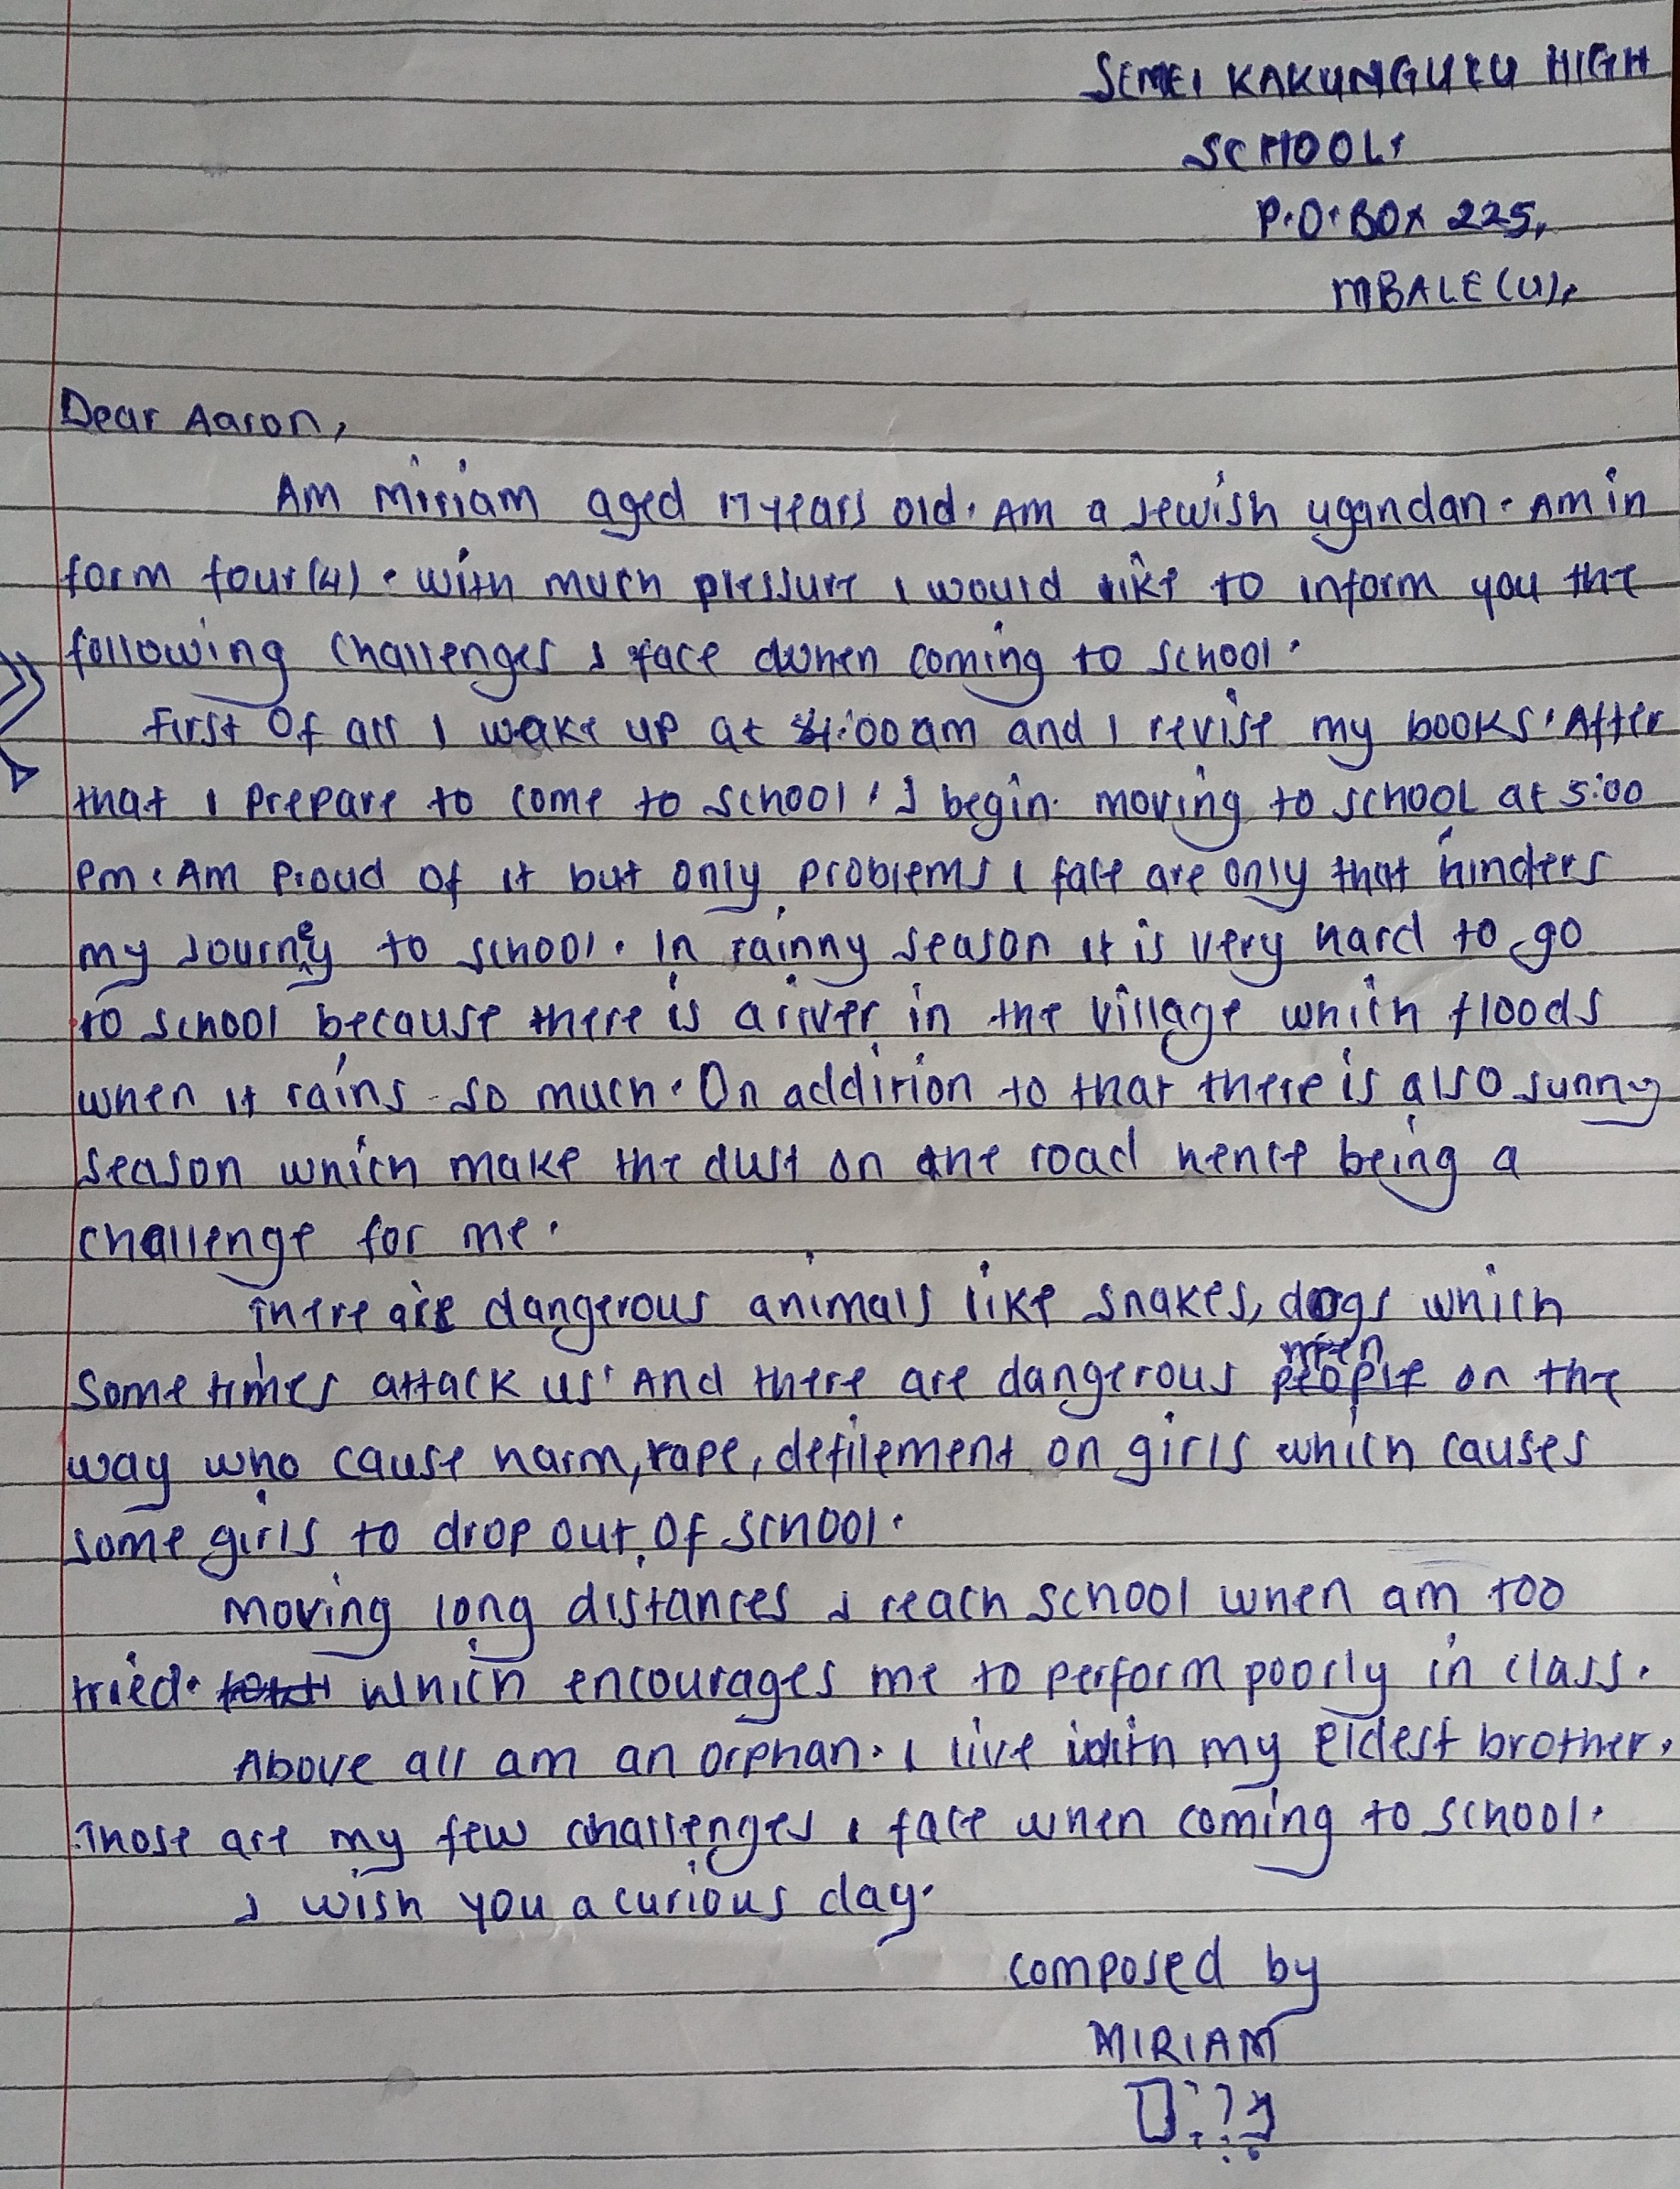 SEMEI KAKUNGULU HIGH
SCHOOL.
P.O.BOX 225,
MBALE (U).
Dear Aaron,
Am Miriam aged 17 years old. Am a Jewish ugandan. Am in
form four (4). with much plessure I would like to inform you the
following challenges I face when coming to school.
First Of all I wake up at 4:00am and I revise my books. After
that I prepare to come to school. I begin moving to school at 5:00
pm. Am Proud of it but only problems I face are only that hinders
my Journey to school. In rainny season it is very hard to go
to school because there is a river in the village which floods
when it rains so much. On addition to that there is also sunny
season which make the dust on the road hence being a
challenge for me.
There are dangerous animals like snakes, dogs which
Some times attack us. And there are dangerous men people on the
way who cause harm, rape, defilement on girls which causes
some girls to drop out of school.
moving long distances I reach school when am too
tried. which encourages me to perform poorly in class.
Above all am an orphan. I live with my eldest brother.
Those are my few challenges I face when coming to school.
I wish you a curious day.
composed by
MIRIAM